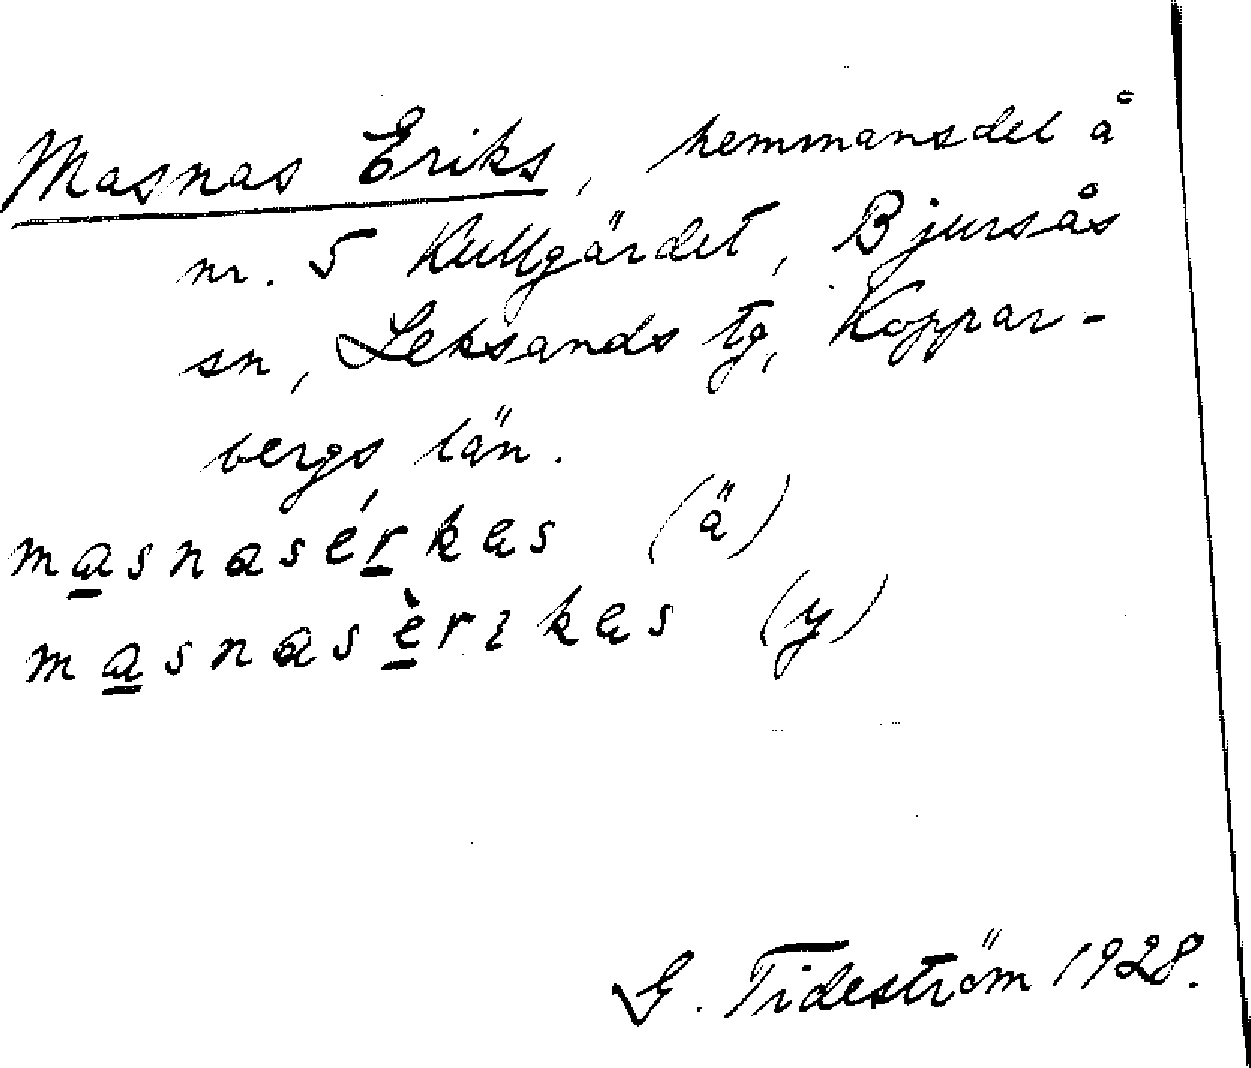 Masnas Eriks, hemmansdel å
nr. 5 Kullgärdet, Bjursås
sn, Leksands tg, Koppar-
bergs län.
masnasérkas (ä)
masnasèrıkas (y)
G. Tideström 1928.